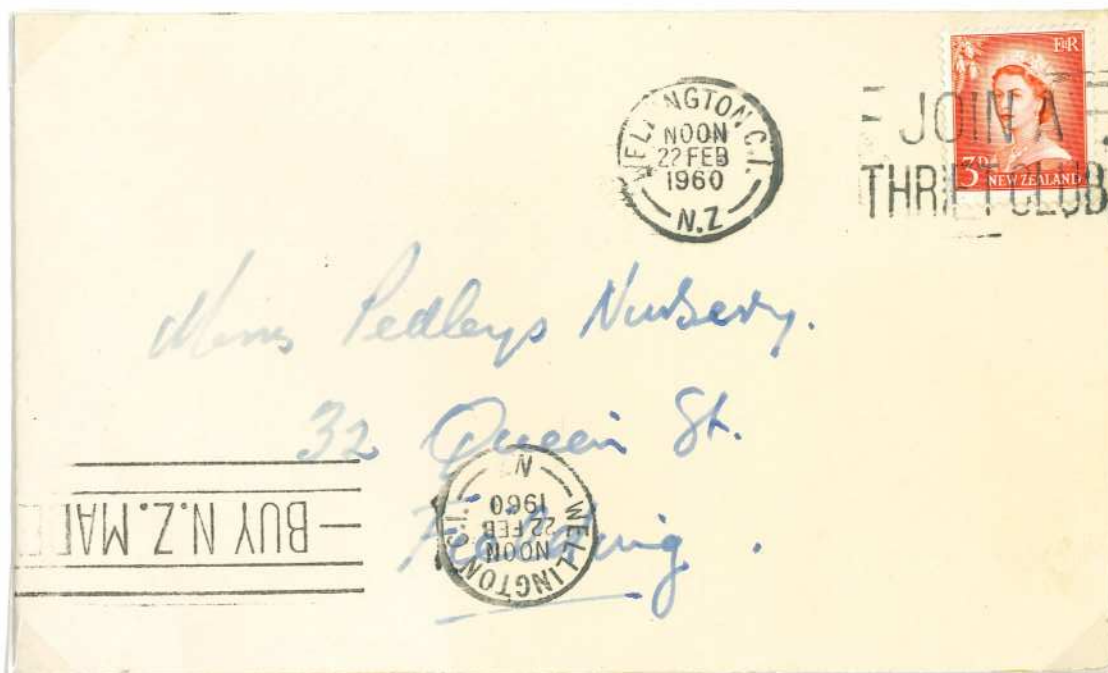 E II R
WELLINGTON C.I.
NOON
22 FEB
1960
N.Z
JOIN A
THRIFT CLUB
3D NEW ZEALAND
Pedleys Nursery.
32 Queen St.
Feilding.
BUY N.Z. MADE
WELLINGTON C.I.
NOON
22 FEB
1960
N